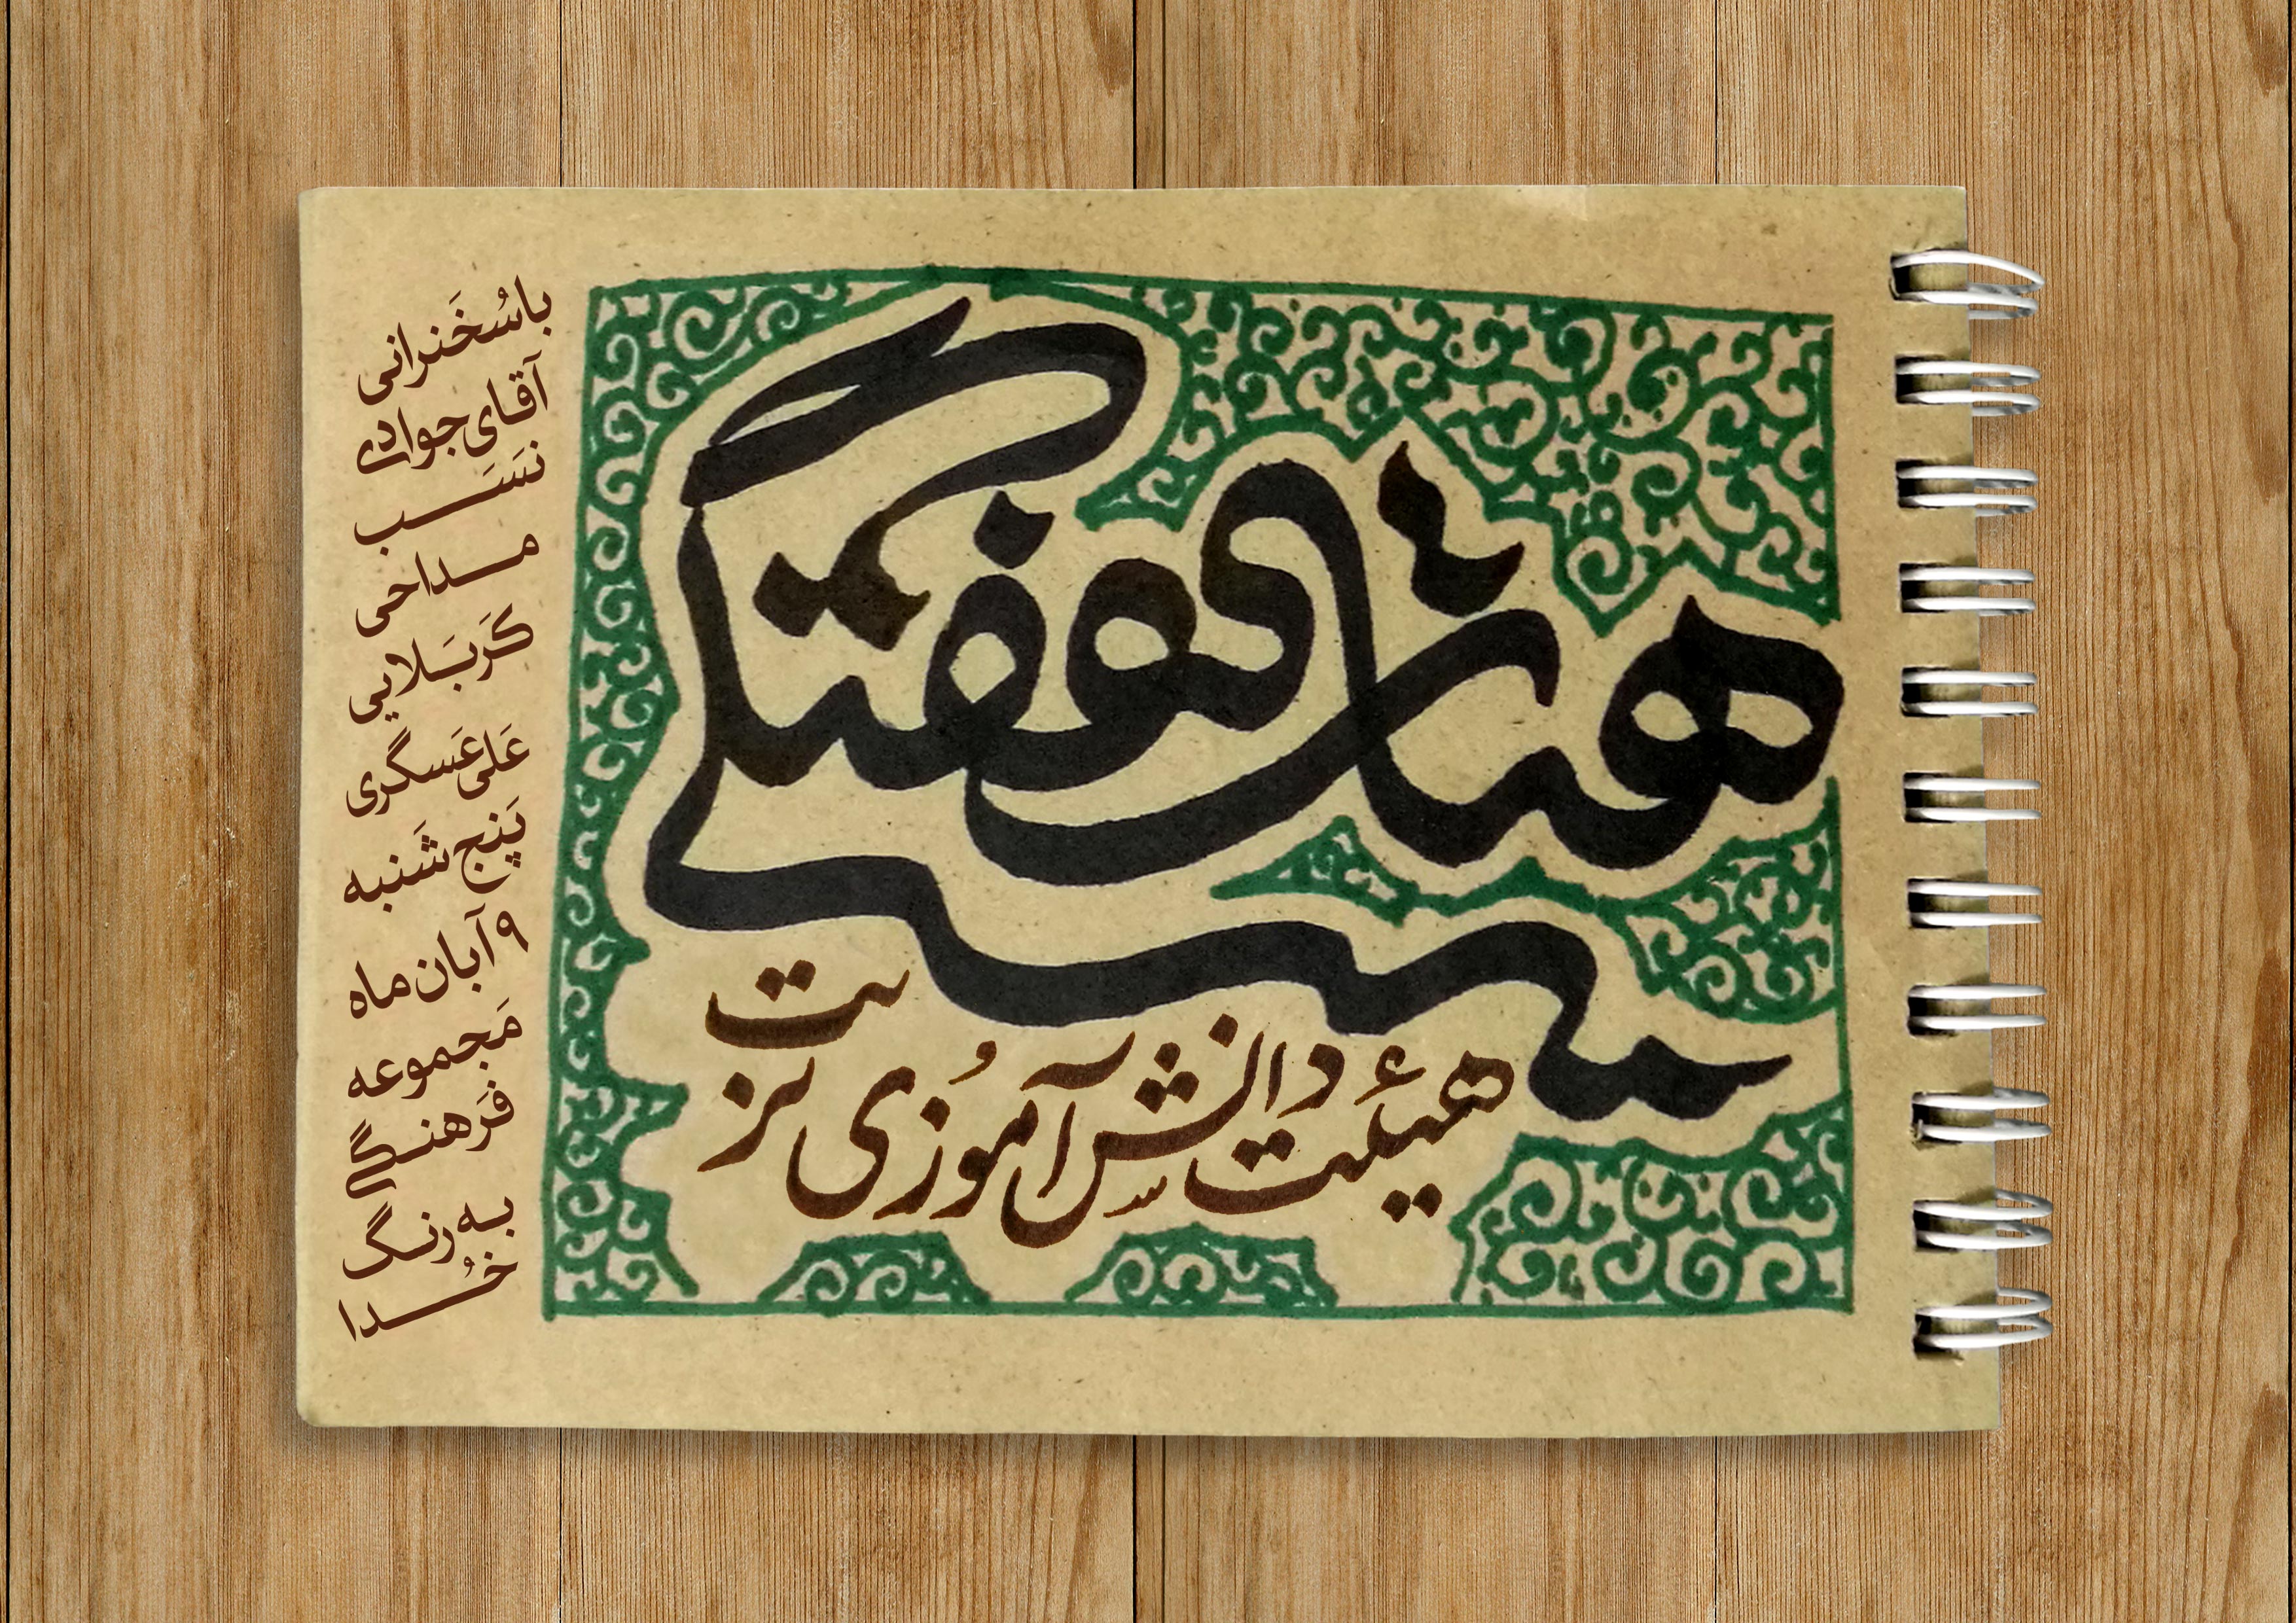 هیأت هفتگی
هیئت دانش‌آموزی
باسُخَنرانی
آقای جوادی
نَسَب
مداحی
کَربَلایی
عَلی عَسگری
پَنج شَنبه
۹ آبان ماه
مَجموعه
فَرهنگی
به رنگ
خُدا